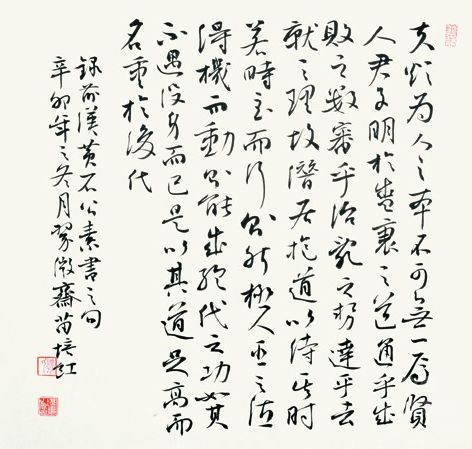 夫欲为人之本不可無一焉賢
人君子明於盛衰之道通乎成
敗之数審乎治亂之势達乎去
就之理故潛居抱道以待其时
若時至而行則能極人臣之位
得機而動則能成絕代之功如其
不遇没身而已是以其道足高而
名重於後代
録前漢黄石公素書之句
辛卯年之冬月翠微齋苗培红